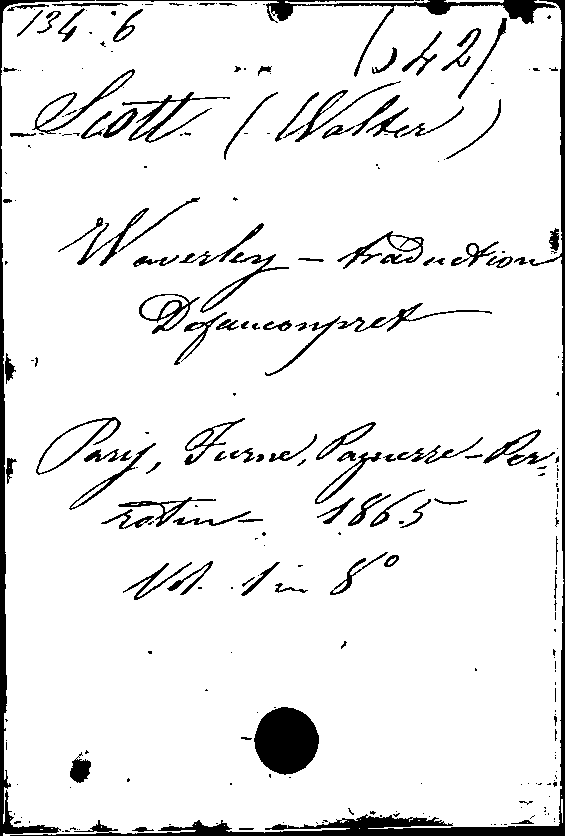 134. 6
(542)
Scott (Walter)
Waverley – traduction
Defauconpret
Paris, Furne, Pagnerre – Per-
rotin – 1865
Vol. 1 in 8°